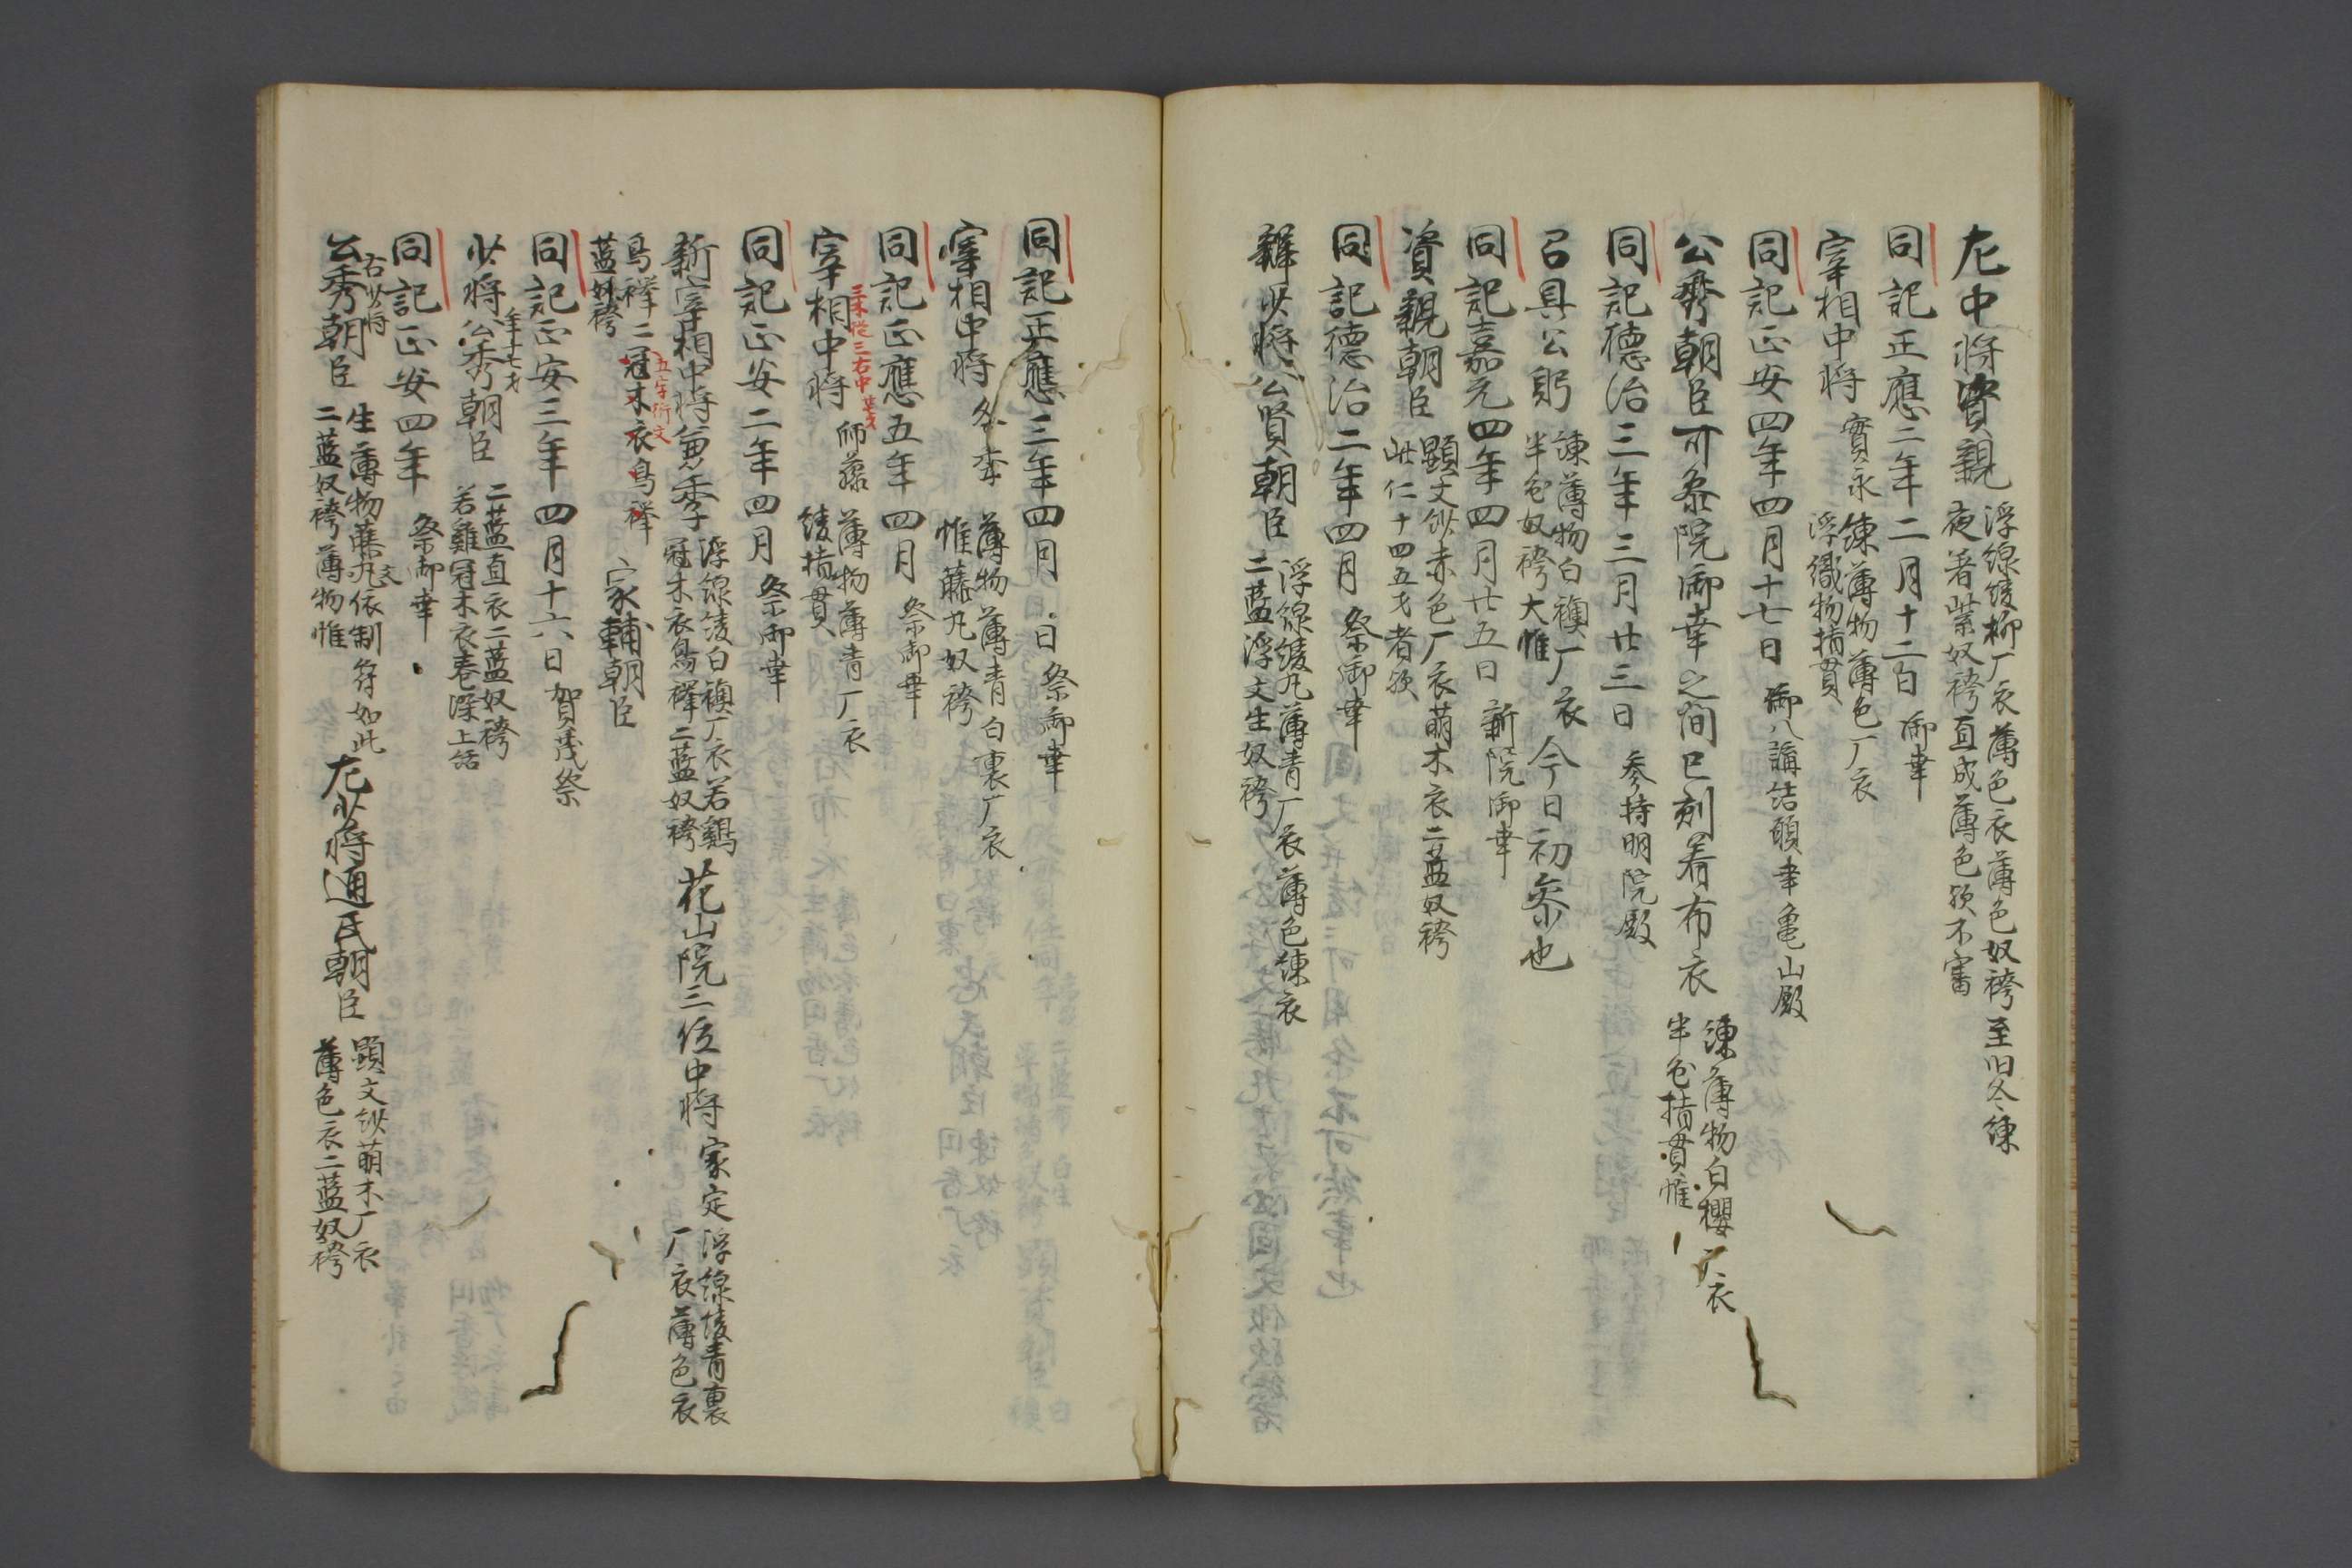 左中将實親
浮線綾柳厂衣薄色衣薄色奴袴至旧冬練
夜著紫奴袴直成薄色欤不審
同記正應二年二月十二日 御幸
宰相中将 實永
練薄物薄色厂衣
浮織物指貫
同記正安四年四月十七日 御八講結願幸亀山殿
公秀朝臣可参院御幸之間巳刻着布衣
練薄物白櫻厂衣
半色指貫帷
同記徳治三年三月廿三日 参持明院殿
召具公躬
練薄物白襖厂衣
半色奴袴大帷
今日初参也
同記嘉元四年四月廿五日 新院御幸
資親朝臣
顕文紗赤色厂衣萌木衣二藍奴袴
此仁十四五才者欤
同記徳治二年四月 祭御幸
羽林少将公賢朝臣
浮線綾丸薄青厂衣薄色練衣
二藍浮文生奴袴
同記正應三年四月 日 祭御幸
宰相中将 冬季
薄物薄青白裏厂衣
帷藤丸奴袴
同記正應五年四月 祭御幸
宰相中将 師藤
薄物薄青厂衣
綾指貫
同記正安二年四月 祭御幸
新宰相中将兼季
浮線綾白襖厂衣若鶏
冠木衣鳥襷二藍奴袴
花山院三位中将 家定
浮線綾青裏
厂衣薄色衣
鳥襷二冠木衣鳥襷
藍奴袴
五字衍文
家輔朝臣
同記正安三年四月十六日 賀茂祭
年十七才
少将公秀朝臣
二藍直衣二藍奴袴
若雞冠木衣巻深上結
同記正安四年 祭御幸
右少将
公秀朝臣
生薄物藤丸文依制符如此
二藍奴袴薄物帷
左少将通氏朝臣
顕文紗萌木厂衣
薄色衣二藍奴袴